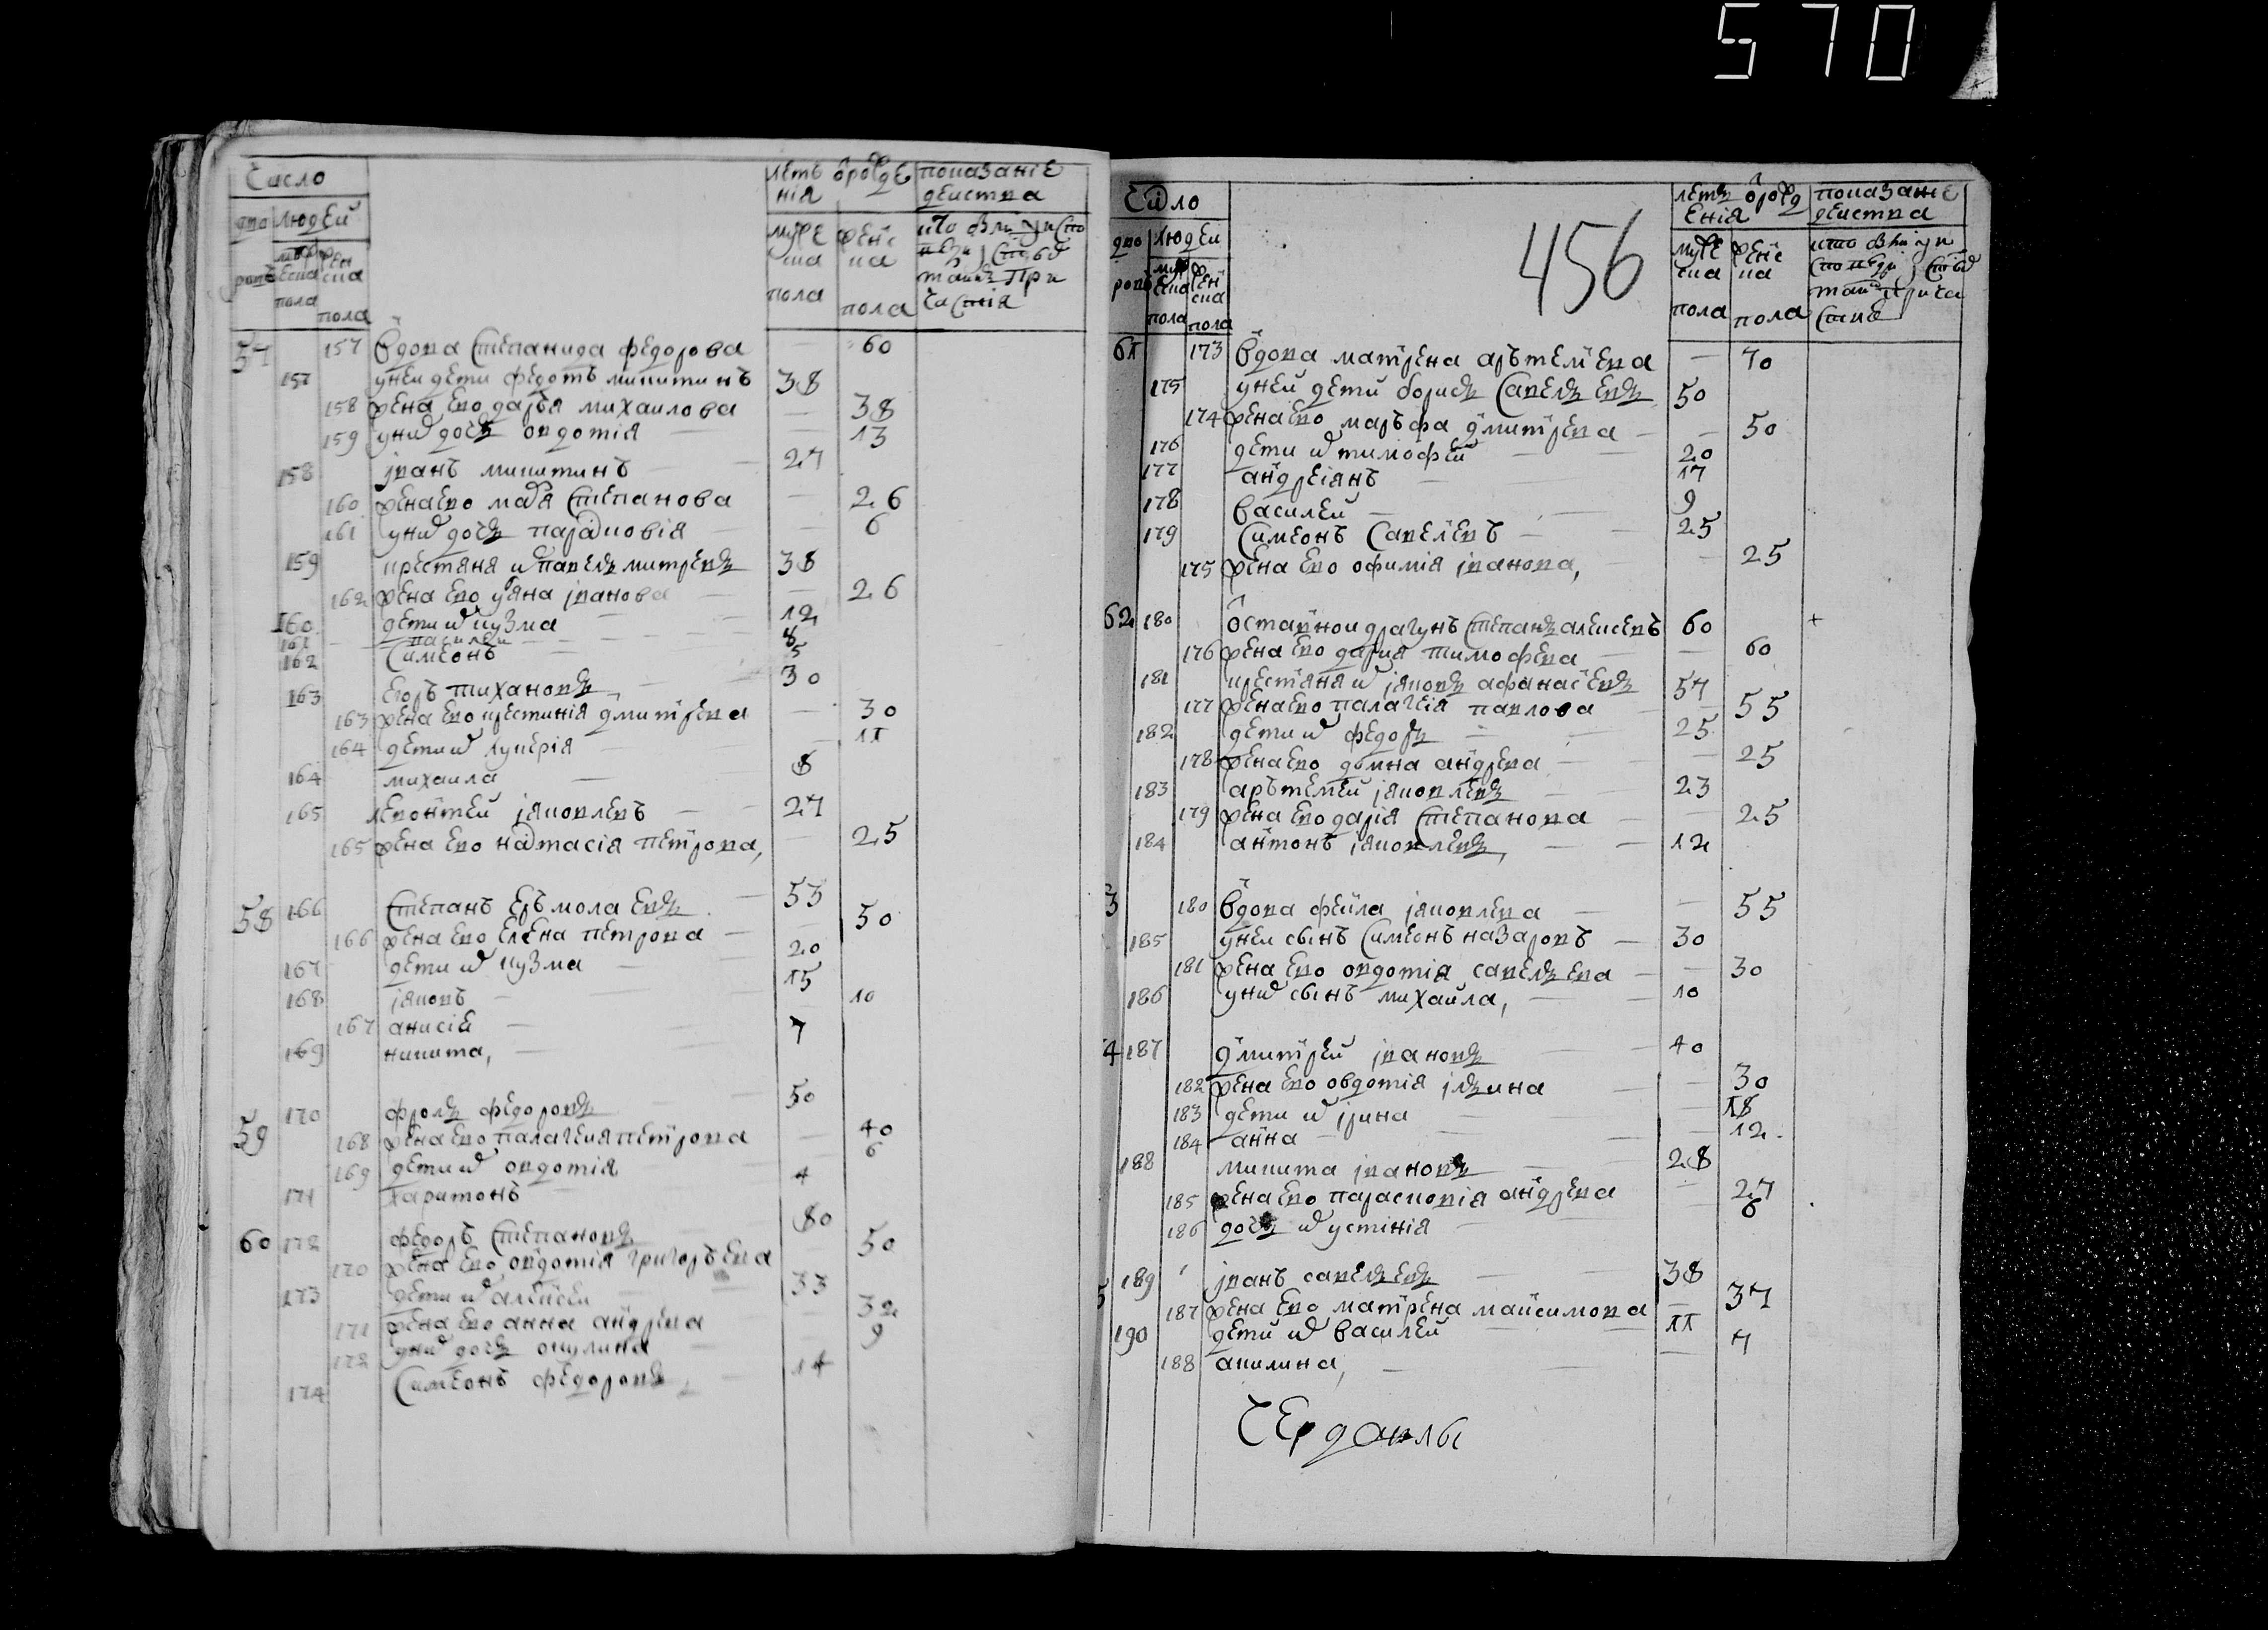 570
Число
лѣтъ о рожде
нія
показаніе
действа
дво
ровъ
людей
мужеска
пола
женска
пола
мужеска
пола
женска
пола
57 157 Вдова Степанида федорова — 60
157 унеи дети федотъ микитинъ 38
158 жена ево даръя михаилова — 38
159 унихъ дочь овдотія — 13
158 іванъ микитинъ — 27
160 жена ево марья Степанова — 26
161 унихъ дочь парасковія — 6
159 крестянинъ павелъ митревъ 38
162 жена ево уляна іванова — 26
160 дети ихъ кузма 12
161 василеи 8
162 Симеонъ 5
163 егоръ тихановъ 30
163 жена ево крестинія дмитрева — 30
164 дети ихъ лукерія — 11
164 михаила — 8
165 левонтей іяковлевъ — 27
165 жена ево настасія петрова, — 25
58 166 Степанъ еръмолаевъ — 53
166 жена ево елена петрова — 50
167 дети ихъ кузма 20
168 іяковъ — 15
167 анисіе — 10
169 никита, — 7
59 170 фролъ федоровъ 50
168 жена ево палагея петрова — 40
169 дети ихъ овдотія 6
171 харитонъ 4
60 172 федоръ Степановъ 80
170 жена ево овдотія григоръева — 50
173 дети ихъ алексеи 33
171 жена ево анна андрева 32
172 унихъ дочь окулина — 9
174 Симеонъ федоровъ, 14
Число
456
летъ о рожд
енія
показание
действа
дво
ровъ
людеи
мужеска
пола
женска
пола
мужеска
пола
женска
пола
61 173 Вдова матрена арътемева — 70
175 уней дети борисъ Савельевъ 50
174 жена ево маръфа дмитрева — — 50
176 дети ихъ тимофей — 20
177 андреянъ — 17
178 василей — 9
179 Симеонъ Савелевъ — 25
175 жена ево офимія іванова, — 25
62 180 отставнои драгунъ Степанъ алексеевъ 60 +
176 жена ево дария тимофева — 60
181 крестянинъ іяковъ афанасевъ 57
177 жена ево палагея павлова 55
182 дети ихъ федоръ — 25
178 жена ево домна андрева — 25
183 аръемей іяковлевъ 23
179 жена ево дарія Степанова — — 25
184 антонъ іяковлевъ, — 12
3 180 Вдова фекла іяковлева — — 55
185 унеи сынъ Симеонъ назаровъ — 30
181 жена ево овдотія савельева — — 30
186 унихъ сынъ михаила, — 10
4 187 дмитрей івановъ — 40
182 жена ево овдотія ильина — — 30
183 дети ихъ ірина — — 18
184 анна — — 12
188 микита івановъ — 28
185 жена ево парасковія андрева — 27
186 дочь ихъ устинія — 6
5 189 іванъ савельевъ 38
187 жена ево матрена максимова — 37
190 дети ихъ василей — 11
188 акилина, — — 7
Чердаклы